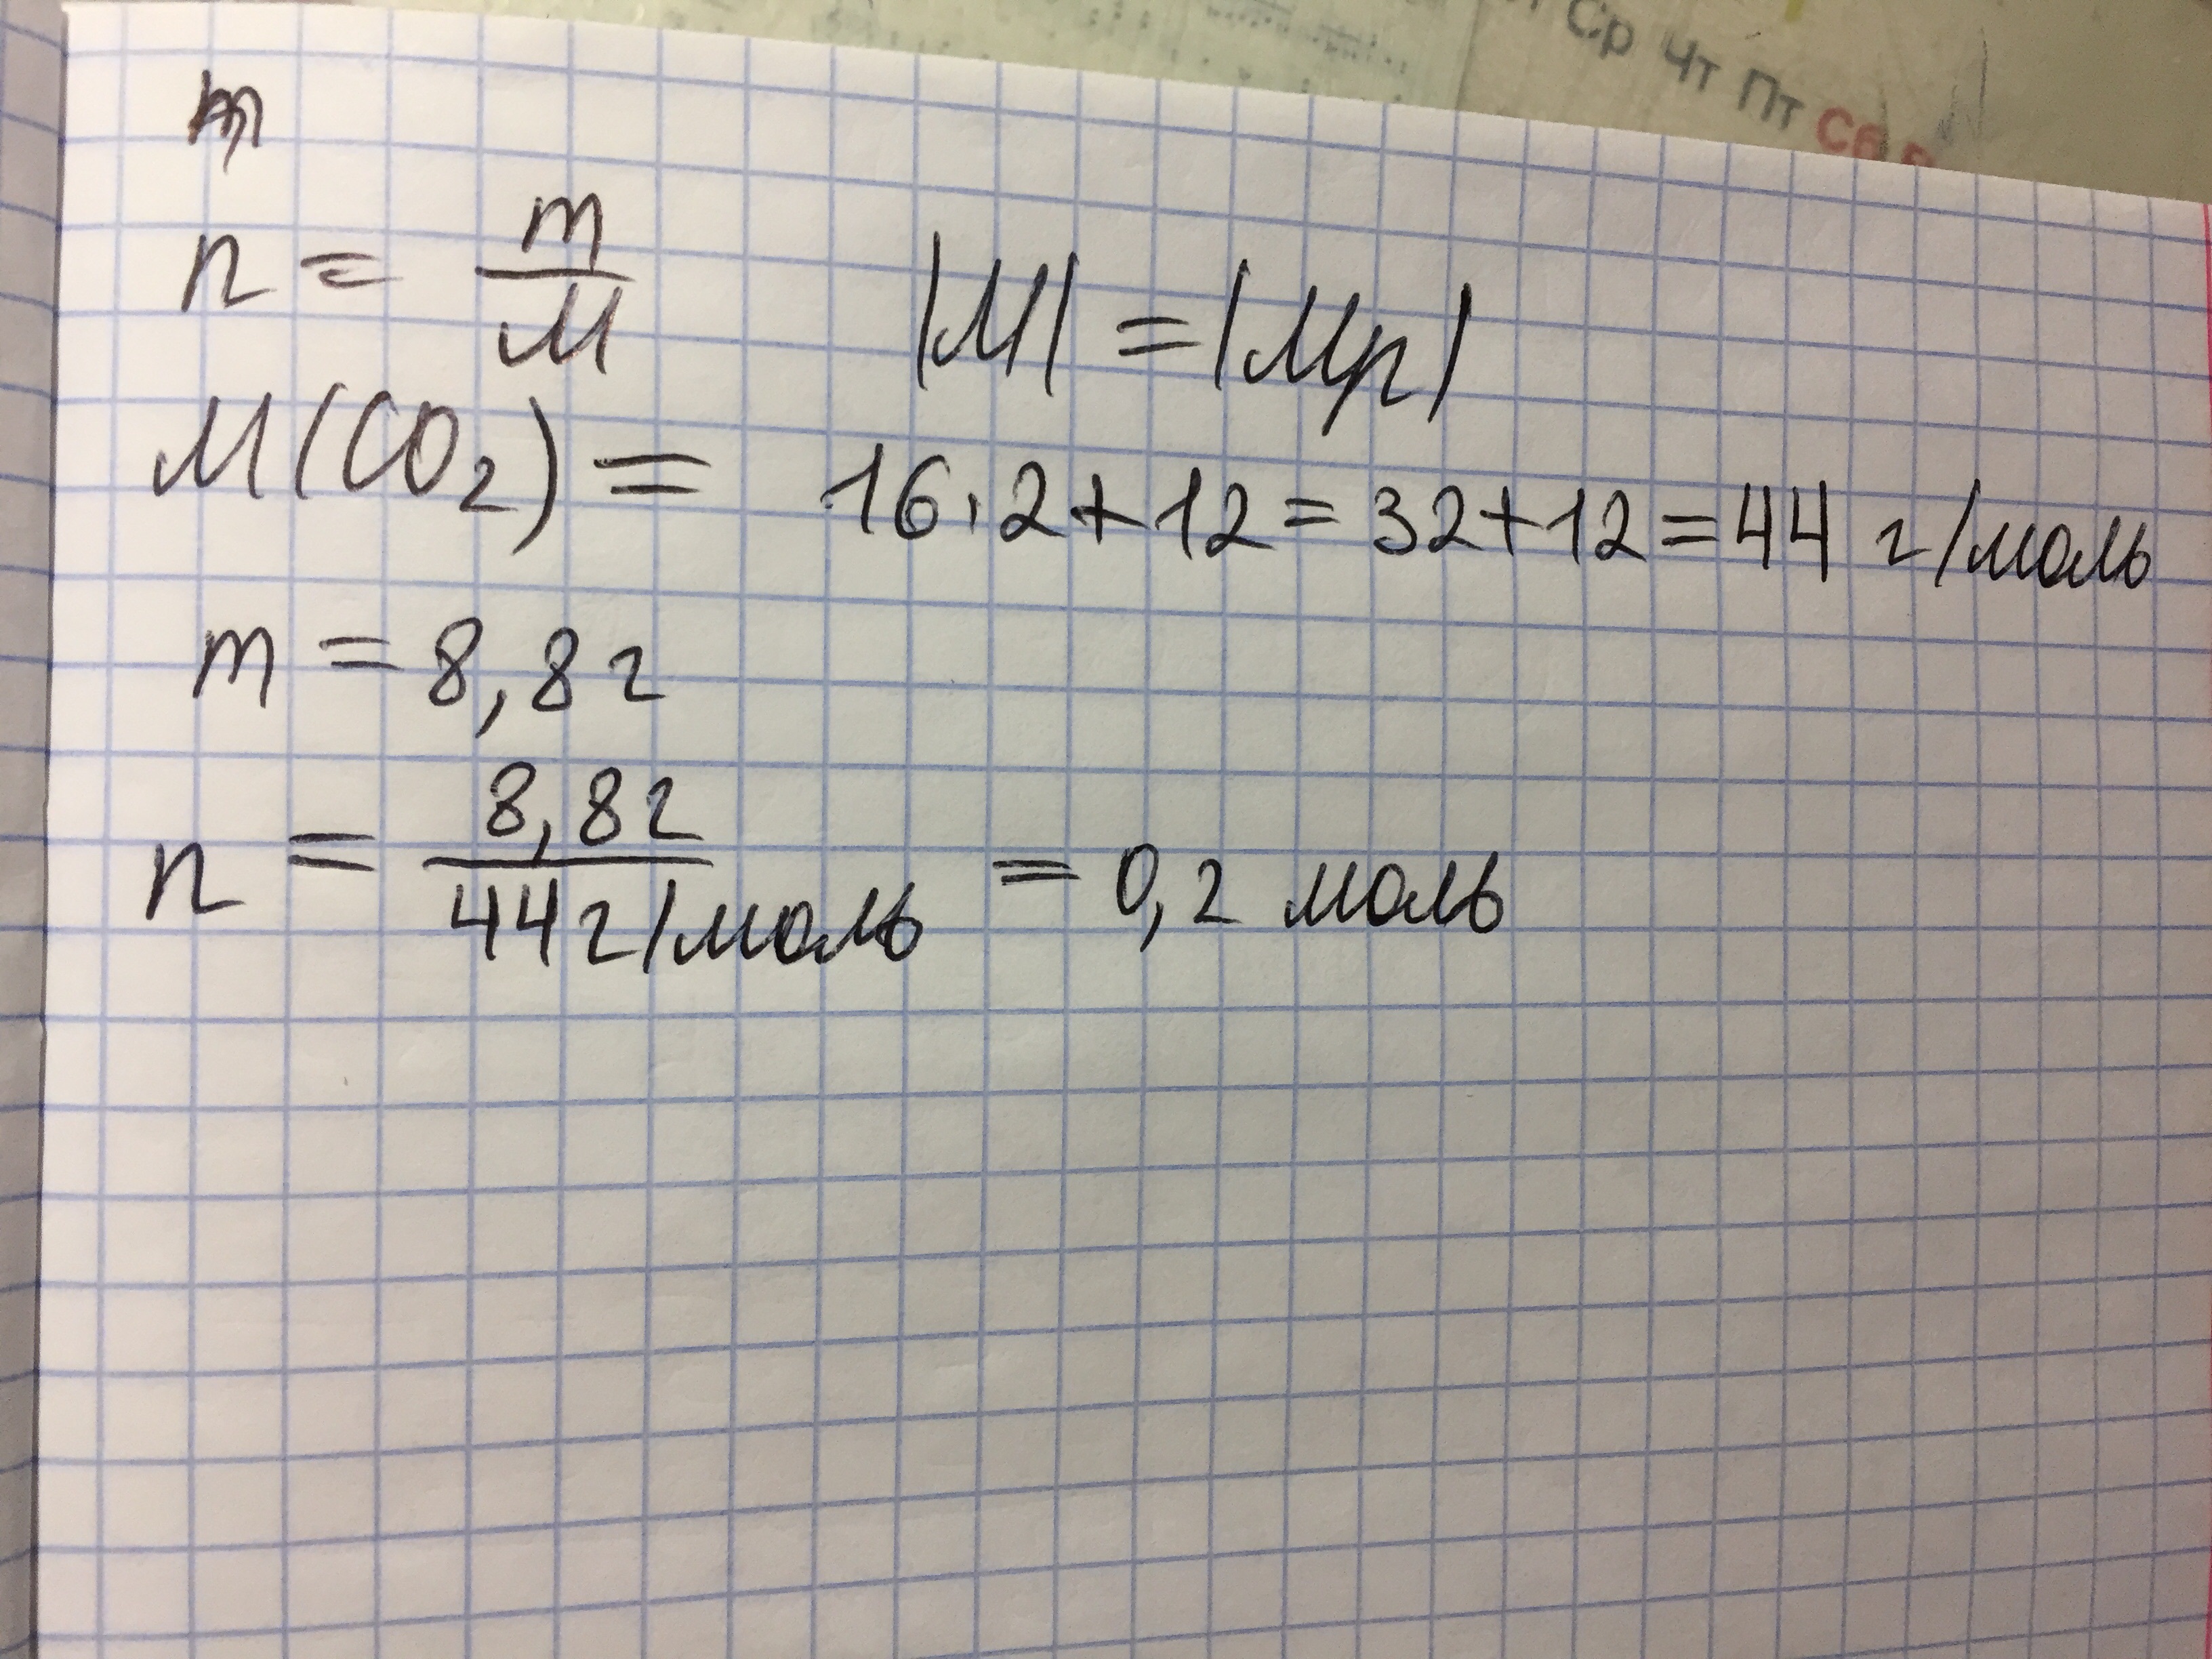 Ср Чт Пт Сб
m
n = m/M |M| = |Mr|
M(CO₂) = 16·2+12=32+12=44 г/моль
m = 8,8г
n = 8,8г/44г/моль = 0,2 моль